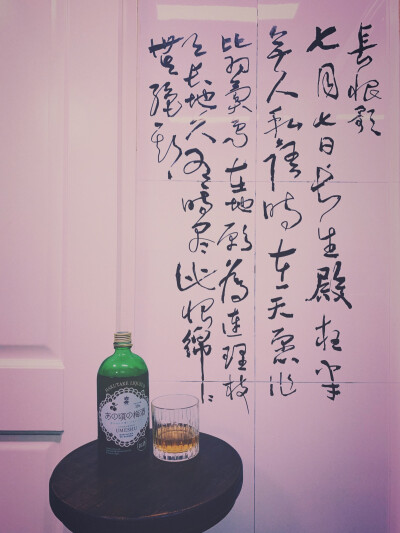 長恨歌
七月七日長生殿夜半
無人私語時在天願作
比翼鳥在地願為連理枝
天長地久有時盡此恨綿々
無絕期
あの頃の梅酒
UMESHU